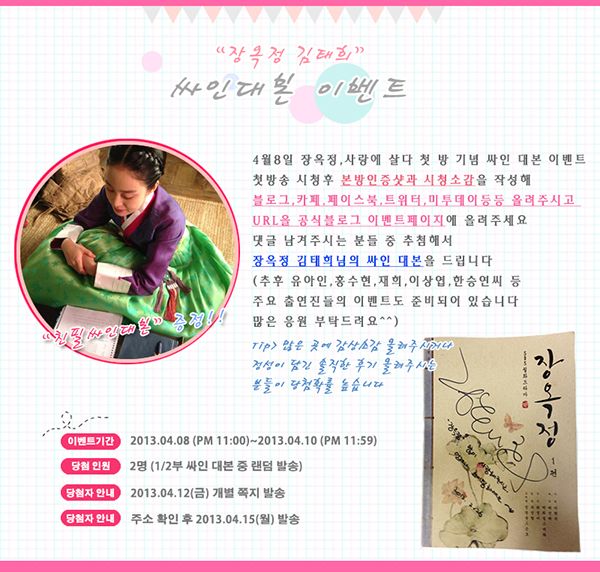 “장옥정 김태희”
싸인대본 이벤트
4월8일 장옥정,사랑에 살다 첫 방 기념 싸인 대본 이벤트
첫방송 시청후 본방인증샷과 시청소감을 작성해
블로그,카페,페이스북,트위터,미투데이등등 올려주시고
URL을 공식블로그 이벤트페이지에 올려주세요
댓글 남겨주시는 분들 중 추첨해서
장옥정 김태희님의 싸인 대본을 드립니다
(추후 유아인,홍수현,재희,이상엽,한승연씨 등
주요 출연진들의 이벤트도 준비되어 있습니다
많은 응원 부탁드려요^^)
“친필싸인대본” 증정!!
Tip> 많은 곳에 감상소감 올려주시거나
정성이 담긴 솔직한 후기 올려주시는
분들이 당첨확률 높습니다
장옥정
1편
이벤트기간 2013.04.08 (PM 11:00)~2013.04.10 (PM 11:59)
당첨 인원 2명 (1/2부 싸인 대본 중 랜덤 발송)
당첨자 안내 2013.04.12(금) 개별 쪽지 발송
당첨자 안내 주소 확인 후 2013.04.15(월) 발송